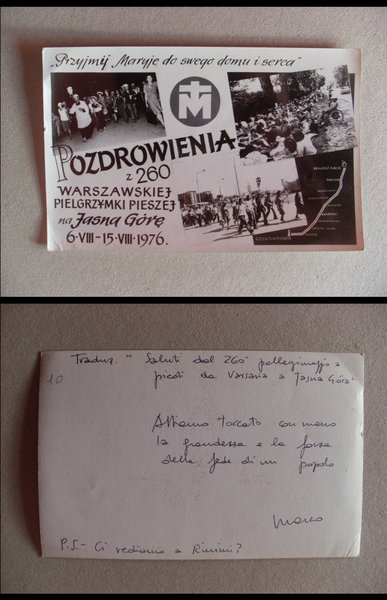 „Przyjmij Maryję do swego domu i serca"
M
POZDROWIENIA
z 260
WARSZAWSKIEJ
PIELGRZYMKI PIESZEJ
na JASNĄ GÓRĘ
6-VIII-15-VIII-1976.
WARSZAWA
CZĘSTOCHOWA
10
Traduz. "Saluti dal 260° pellegrinaggio a
piedi da Varsavia a Jasna Góra"
Abbiamo toccato con mano
la grandezza e la forza
della fede di un popolo
Marco
P.S.- Ci vediamo a Rimini?